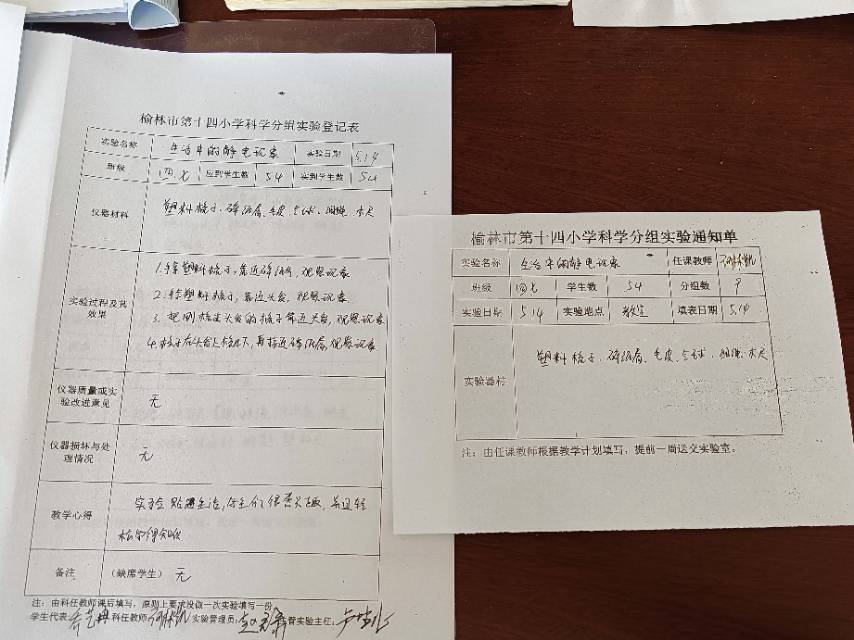 榆林市第十四小学科学分组实验登记表
实验名称 生活中的静电现象 实验日期 5.14
班级 四.七 应到学生数 54 实到学生数 54
仪器材料 塑料梳子、碎纸屑、毛皮、气球、细绳、木尺
1.拿塑料梳子,靠近碎纸屑,观察现象
实验过程及其
效果
2.拿塑料梳子,靠近头发,观察现象
3.把刚梳过头发的梳子靠近头发,观察现象
4.梳子在头发上梳几下,再接近碎纸屑,观察现象
仪器质量或实
验改进意见 无
仪器损坏与处
理情况 无
教学心得 实验贴近生活,学生们很感兴趣,并且轻
备注 (缺席学生) 无
注:由科任教师课后填写,原则上要求没做一次实验填写一份
学生代表: 科任教师 实验管理员: 管实验主任:
榆林市第十四小学科学分组实验通知单
实验名称 生活中的静电现象 任课教师
班级 四七 学生数 54 分组数
实验日期 5.14 实验地点 教室 填表日期 5.14
实验器材 塑料梳子、碎纸屑、毛皮、气球、细绳、木尺
注:由任课教师根据教学计划填写,提前一周送交实验室。